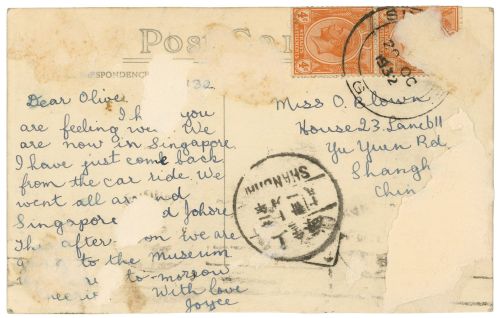 Post Car
RESPONDENCE
132
Dear Olive
I h you
are feeling we We
are now in Singapore
I have just come back
from the car ride. We
went all a nd
Singapore d Johore
Th after on we are
to the Museum
to-morrow
With love
Joyce
Miss O. Blown
House 23. Lane 611
Yu Yuen Rd
Shangh
Chin
20 OC
1932
SHANGHAI